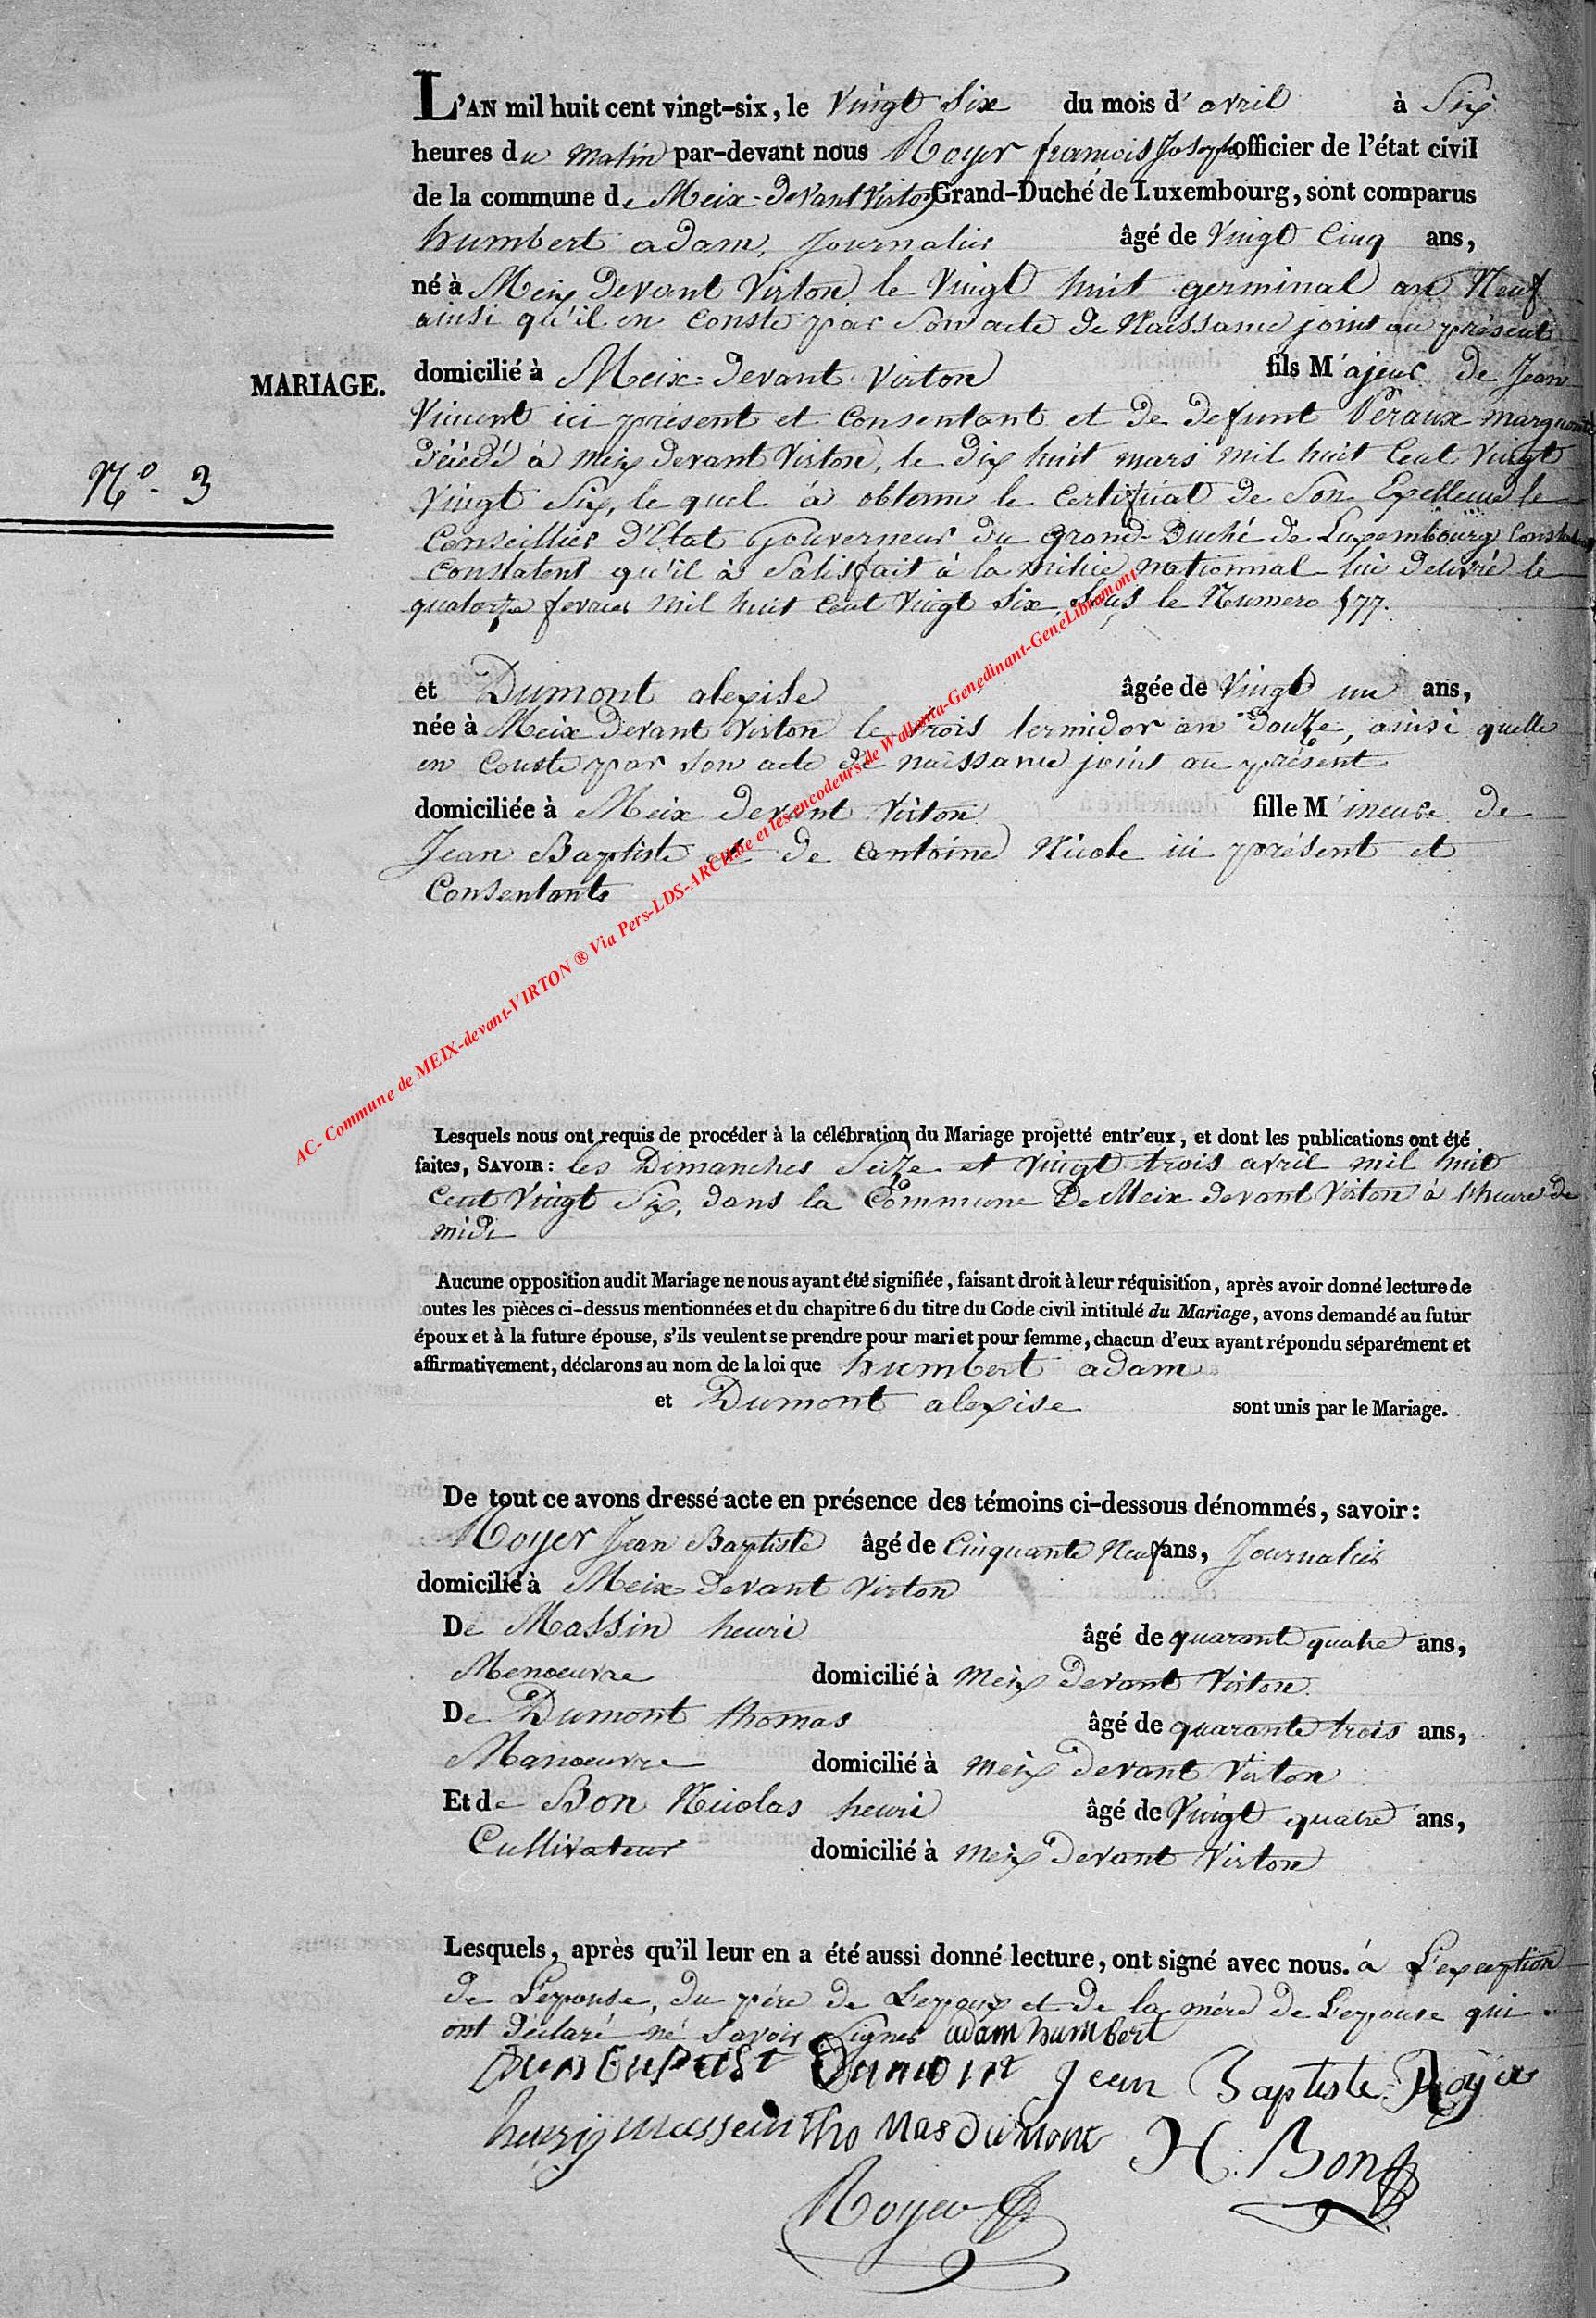 L'AN mil huit cent vingt-six, le Vingt Six du mois d' avril à Six
heures du matin par-devant nous Royer francois Joseph officier de l'état civil
de la commune de Meix-devant Virton Grand-Duché de Luxembourg, sont comparus
humbert adam, Journalier âgé de Vingt Cinq ans,
né à Meix devant Virton le Vingt huit germinal an Neuf
ainsi qu'il en Conste par Son acte de Naissance joint au présent
MARIAGE.
domicilié à Meix-devant Virton fils M'ajeur de Jean
Vincent ici présent et Consentant et de defunt Véraux marguerite
N° 3
décédé à Meix devant Virton, le dix huit mars mil huit Cent Vingt
Vingt Six, le quel à obtenu le Certificat de Son Exellence le
Conseillier d'Etat Gouverneur du Grand-Duché de Luxembourg
Constatent qu'il à Satisfait à la milice nationnal lui delivré le
quatorze fevrier mil huit Cent Vingt Six, Sous le Numero 577.
et Dumont alexise âgée de Vingt un ans,
née à Meix devant Virton le trois termidor an douze, ainsi quelle
en Conste par Son acte de naissance joint au présent
domiciliée à Meix devant Virton fille M'ineure de
Jean Baptiste et de antoine Nicole ici présent et
Consentants
AC- Commune de MEIX-devant-VIRTON ® Via Pers-LDS-ARCH.be et les encodeurs de Wallonia-Genedinant-GeneLibramont
Lesquels nous ont requis de procéder à la célébration du Mariage projetté entr'eux, et dont les publications ont été
faites, SAVOIR: les Dimanches Seize et Vingt trois avril mil huit
Cent Vingt Six, dans la Commune De Meix devant Virton à l'heure de
midi
Aucune opposition audit Mariage ne nous ayant été signifiée, faisant droit à leur réquisition, après avoir donné lecture de
outes les pièces ci-dessus mentionnées et du chapitre 6 du titre du Code civil intitulé du Mariage, avons demandé au futur
époux et à la future épouse, s'ils veulent se prendre pour mari et pour femme, chacun d'eux ayant répondu séparément et
affirmativement, déclarons au nom de la loi que humbert adam
et Dumont alexise sont unis par le Mariage.
De tout ce avons dressé acte en présence des témoins ci-dessous dénommés, savoir:
Royer Jean Baptiste âgé de Cinquante Neuf ans, Journalier
domicilié à Meix-devant Virton
De Massin henri âgé de quarant quatre ans,
Menoeuvre domicilié à Meix devant Virton
De Dumont thomas âgé de quarante trois ans,
Manoeuvre domicilié à Meix devant Virton
Et de Bon Nicolas henri âgé de Vingt quatre ans,
Cultivateur domicilié à Meix devant Virton
Lesquels, après qu'il leur en a été aussi donné lecture, ont signé avec nous. à L'exception
de L'epouse, du pére de L'epoux et de la mére de L'epouse qui
ont déclaré né Savoir Signer adam humbert
Dumont Jean Baptiste Royer
henry massein thomas dumont H. Bon
Royer